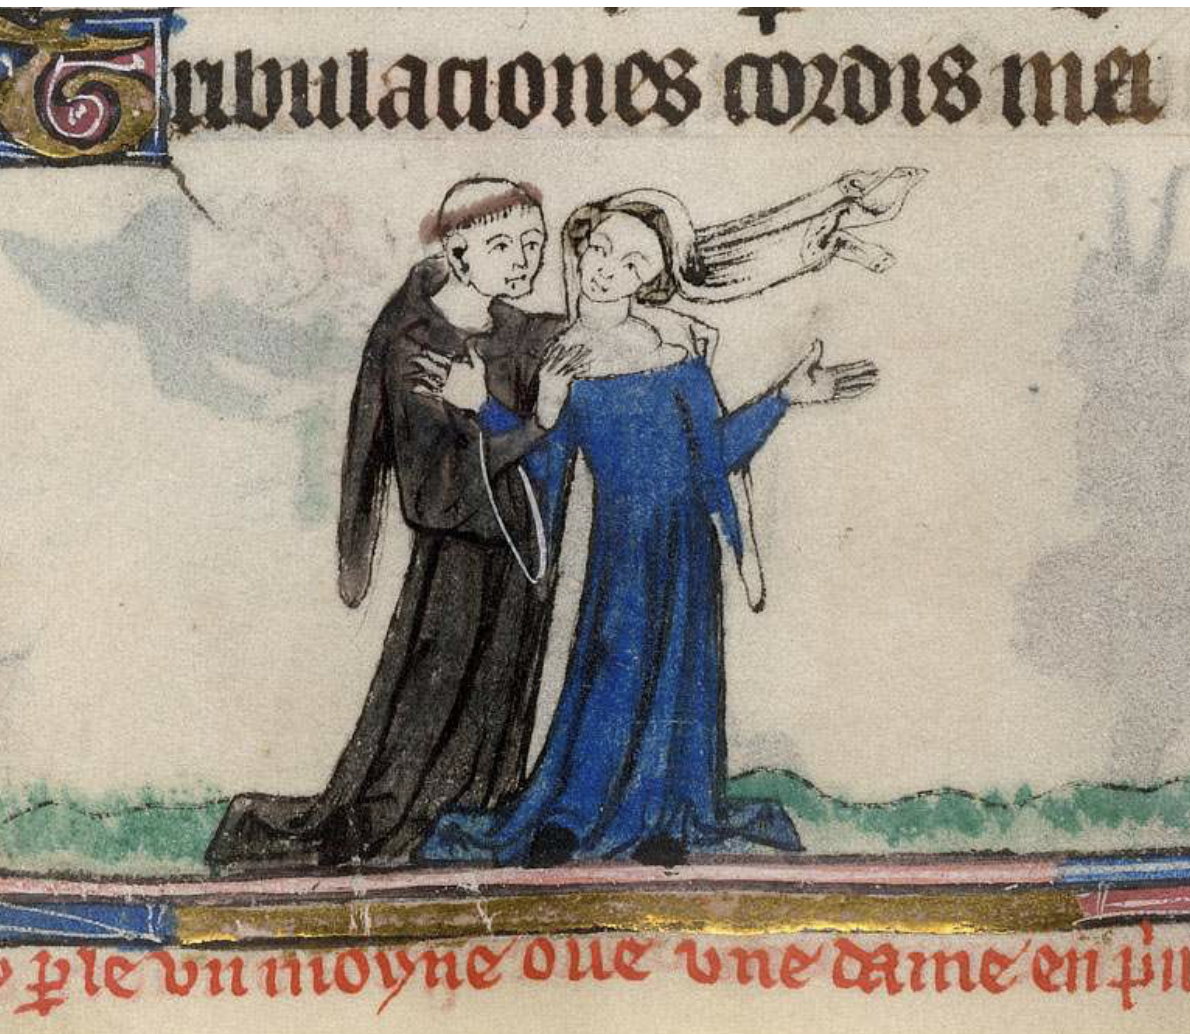 Tribulaciones cordis mei
ꝑle vn moyne oue vne dame en